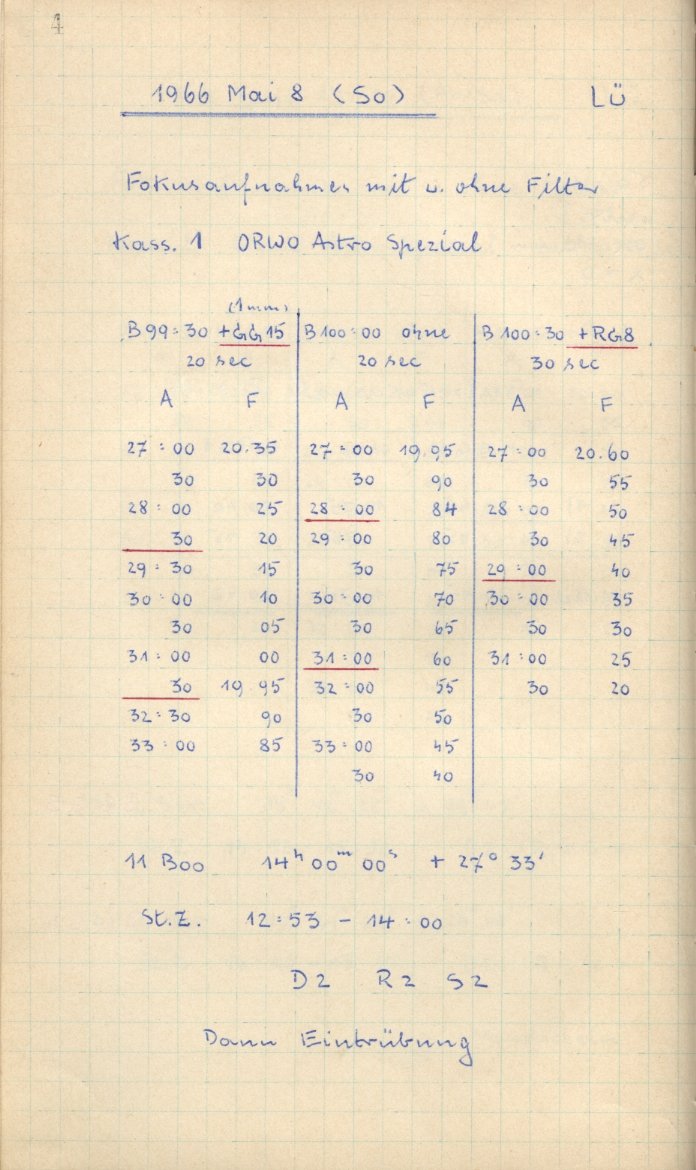 4
1966 Mai 8 (So) Lü
Fokusaufnahmen mit u. ohne Filter
Kass. 1 ORWO Astro Spezial
(1mm)
B 99:30 +GG15 B 100:00 ohne B 100:30 +RG8
20 sec 20 sec 30 sec
A F A F A F
27:00 20.35 27:00 19.95 27:00 20.60
30 30 30 90 30 55
28:00 25 28:00 84 28:00 50
30 20 29:00 80 30 45
29:30 15 30 75 29:00 40
30:00 10 30:00 70 30:00 35
30 05 30 65 30 30
31:00 00 31:00 60 31:00 25
30 19.95 32:00 55 30 20
32:30 90 30 50
33:00 85 33:00 45
30 40
11 Boo 14h 00m 00s + 27° 33'
St.Z. 12:53 – 14:00
D2 R2 S2
Dann Eintrübung